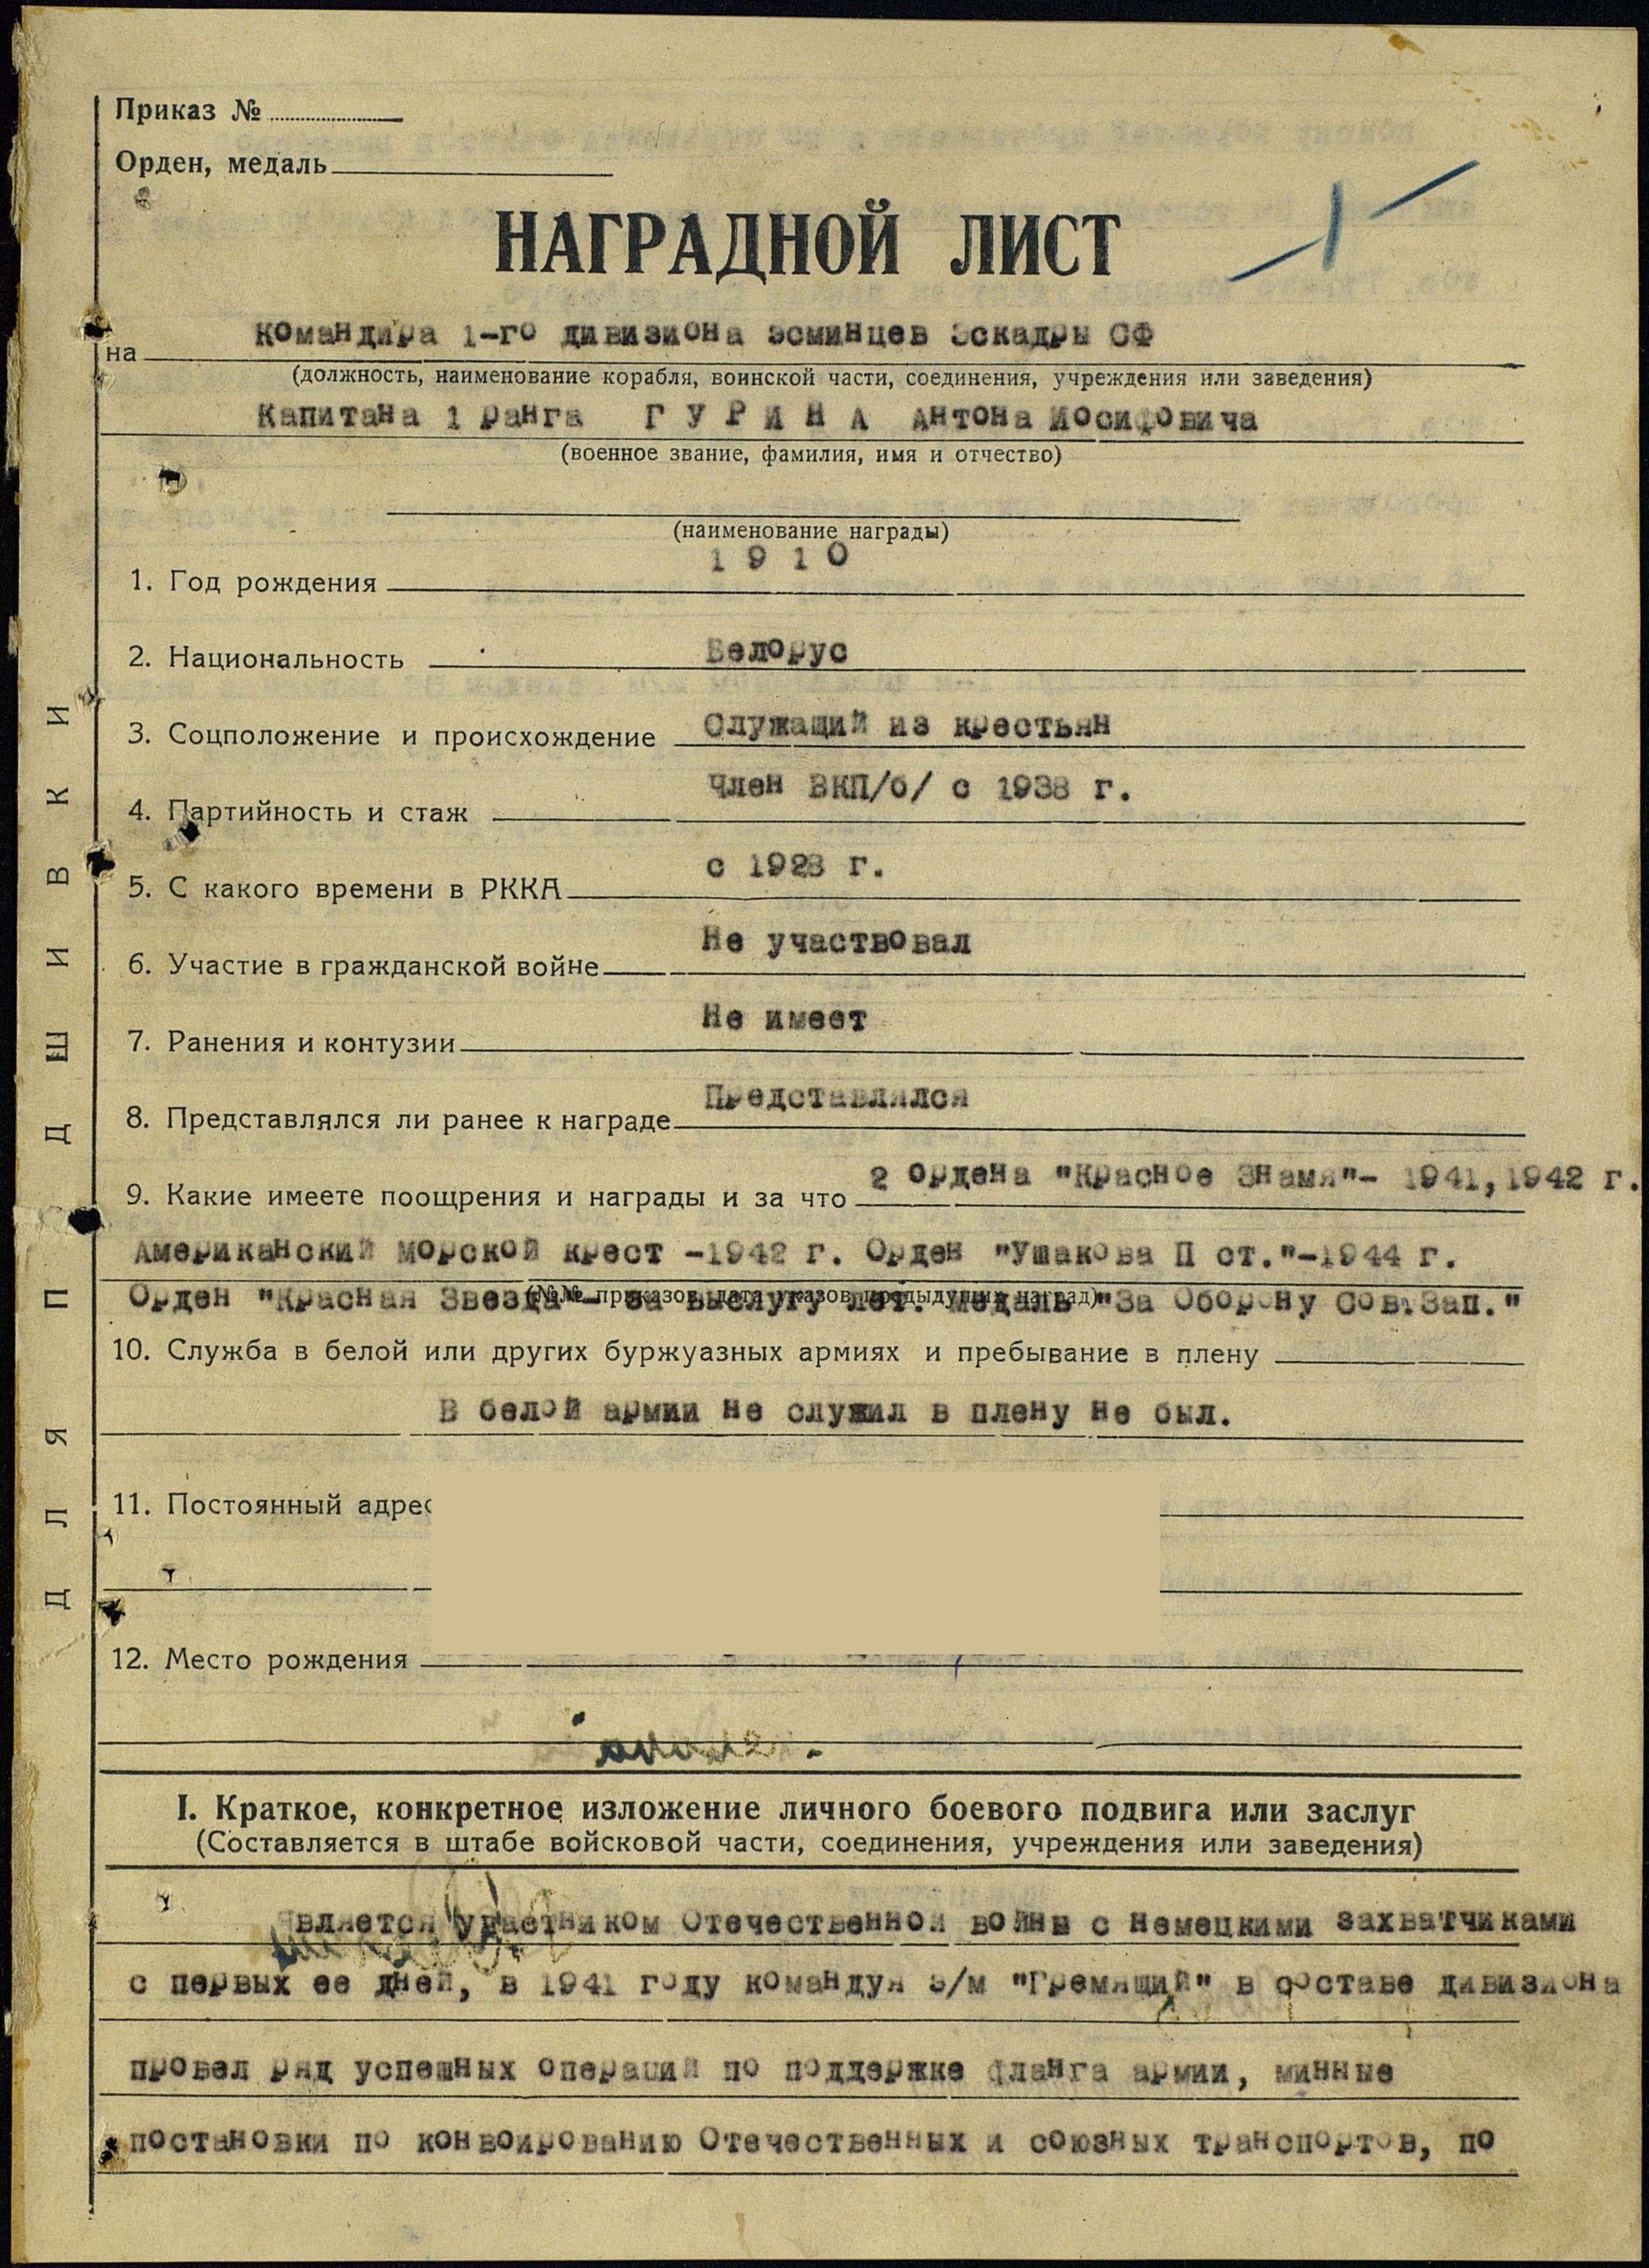 Приказ №
Орден, медаль
НАГРАДНОЙ ЛИСТ
на Командира 1-го дивизиона эсминцев Эскадры СФ
(должность, наименование корабля, воинской части, соединения, учреждения или заведения)
Капитана 1 ранга ГУРИНА Антона Иосифовича
(военное звание, фамилия, имя и отчество)
(наименование награды)
1. Год рождения 1910
2. Национальность Белорус
3. Соцположение и происхождение Служащий из крестьян
4. Партийность и стаж Член ВКП/б/ с 1938 г.
5. С какого времени в РККА с 1928 г.
6. Участие в гражданской войне Не участвовал
7. Ранения и контузии Не имеет
8. Представлялся ли ранее к награде Представлялся
9. Какие имеете поощрения и награды и за что 2 ордена "Красное Знамя"- 1941,1942 г.
Американский морской крест -1942 г. Орден "Ушакова П ст."-1944 г.
(№№ приказов, дата указов предыдущих наград)
Орден "Красная Звезда"- за выслугу лет. Медаль "За Оборону Сов.Зап."
10. Служба в белой или других буржуазных армиях и пребывание в плену
В белой армии не служил в плену не был.
11. Постоянный адрес
12. Место рождения
I. Краткое, конкретное изложение личного боевого подвига или заслуг
(Составляется в штабе войсковой части, соединения, учреждения или заведения)
Является участником Отечественной войны с немецкими захватчиками
с первых ее дней, в 1941 году командуя э/м "Гремящий" в составе дивизиона
провел ряд успешных операций по поддержке фланга армии, минные
постановки по конвоированию Отечественных и союзных транспортов, по
ДЛЯ ПОДШИВКИ